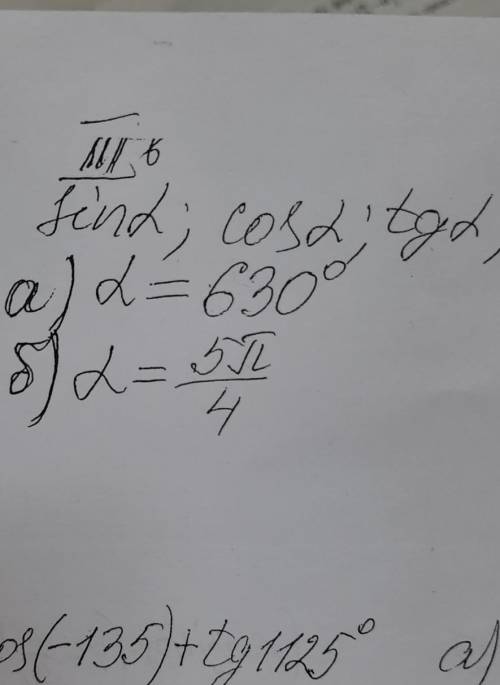 III в
sinα; cosα; tgα,
а) α = 630°
б) α = 5π/4
os(-135) + tg1125° а)